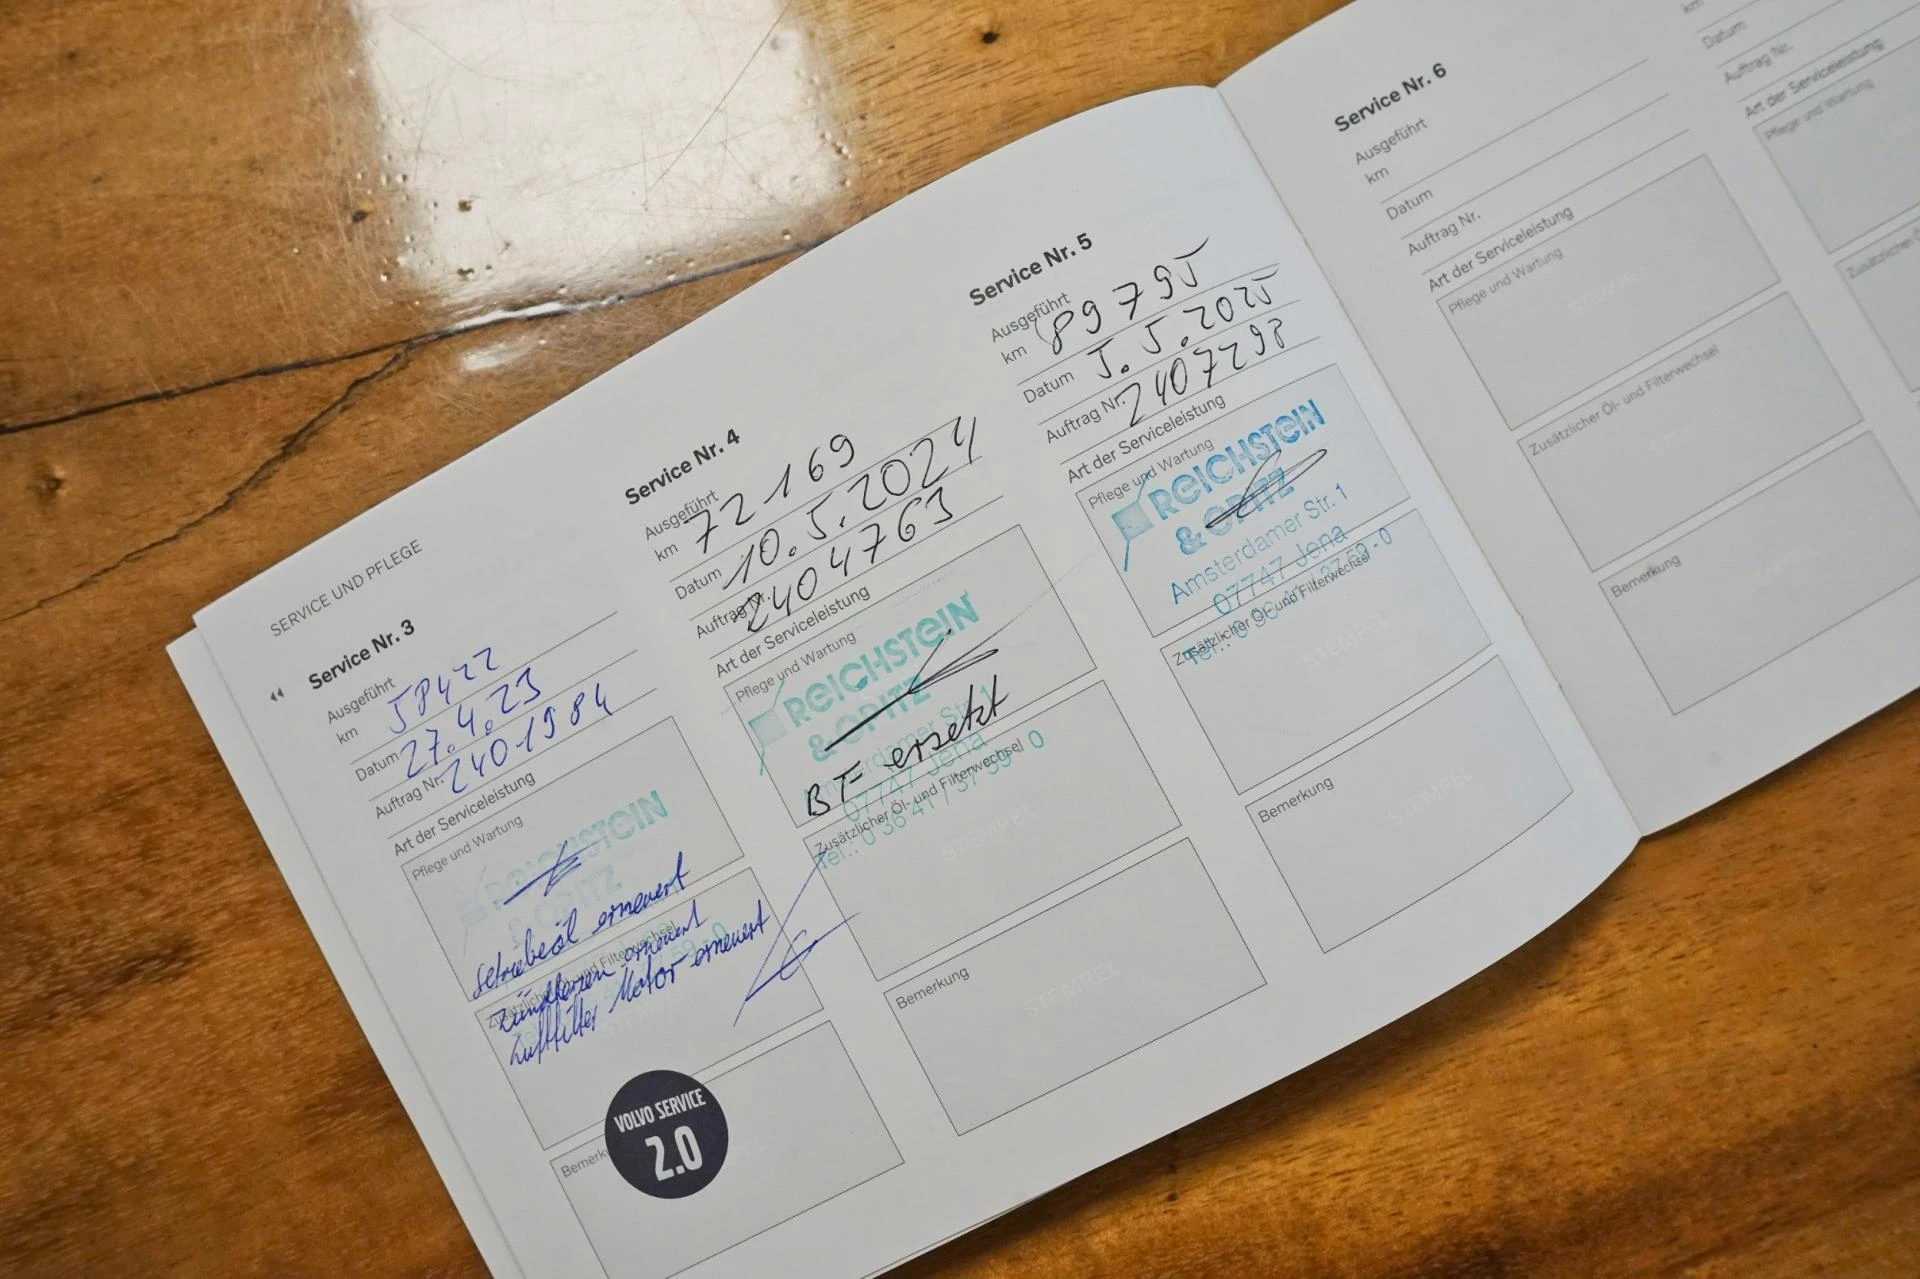 SERVICE UND PFLEGE
44
Service Nr. 3
Ausgeführt
km 58422
Datum 27.4.23
Auftrag Nr. 2401984
Art der Serviceleistung
Pflege und Wartung
REICHSTEIN
& OPITZ
Getriebeöl erneuert
Zündkerzen erneuert
Luftfilter Motor erneuert
STEMPEL
VOLVO SERVICE
2.0
Service Nr. 4
Ausgeführt
km 72169
Datum 10.5.2024
Auftrag Nr. 2404763
Art der Serviceleistung
Pflege und Wartung
REICHSTEIN
& OPITZ
Amsterdamer Str. 1
BF ersetzt
07747 Jena
Zusätzlicher Öl- und Filterwechsel
Tel.: 0 36 41 / 37 59 - 0
STEMPEL
Bemerkung
STEMPEL
Service Nr. 5
Ausgeführt
km 89795
Datum 5.5.2025
Auftrag Nr. 2407298
Art der Serviceleistung
Pflege und Wartung
REICHSTEIN
& OPITZ
Amsterdamer Str. 1
07747 Jena
Zusätzlicher Öl- und Filterwechsel
Tel.: 0 36 41 / 37 59 - 0
STEMPEL
Bemerkung
STEMPEL
Service Nr. 6
Ausgeführt
km
Datum
Auftrag Nr.
Art der Serviceleistung
Pflege und Wartung
STEMPEL
Zusätzlicher Öl- und Filterwechsel
Bemerkung
km
Datum
Auftrag Nr.
Art der Serviceleistung
Pflege und Wartung